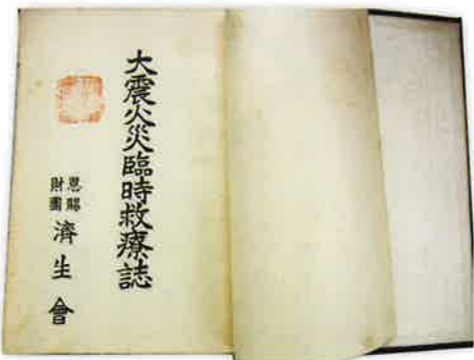 大震火災臨時救療誌
恩賜
財團
濟生會